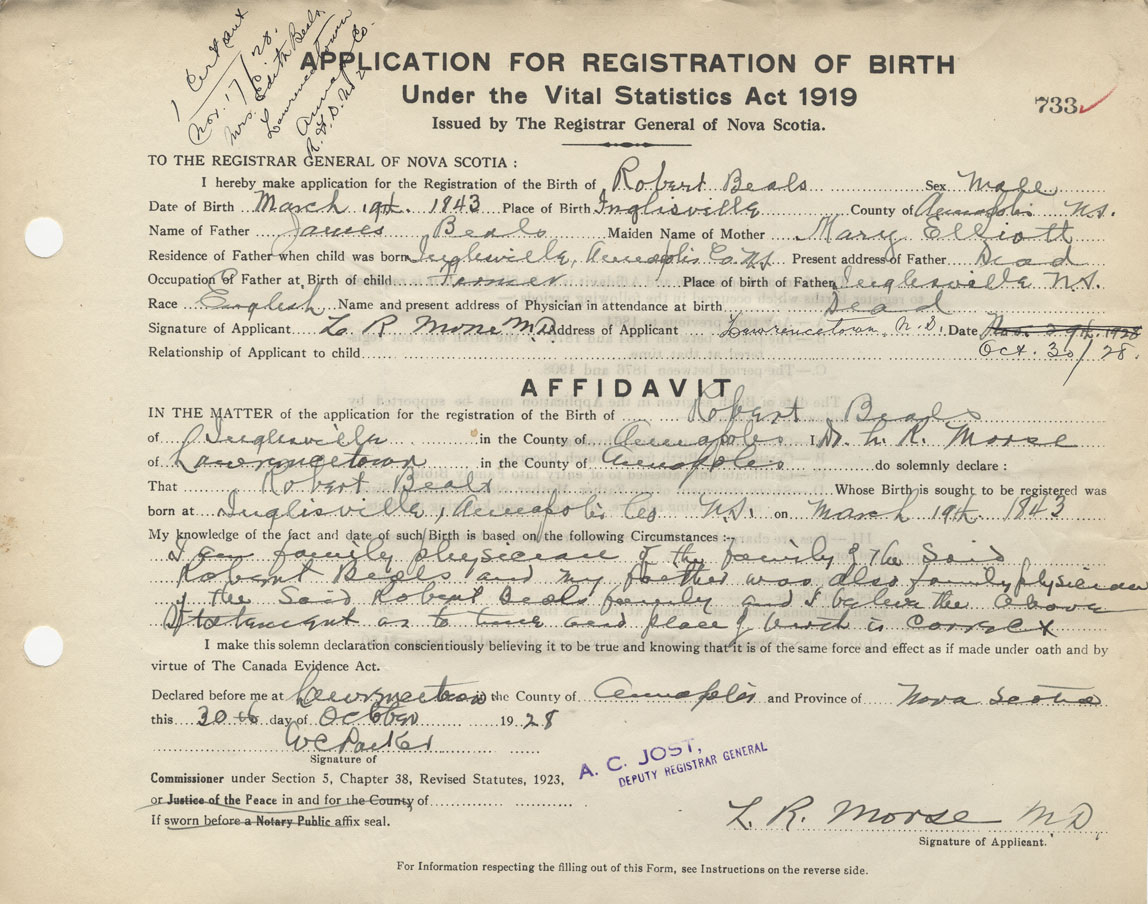 1 Cert sent
Nov. 17/28.
Mrs. Edith Beals
Lawrencetown
Annap. Co.
R.F.D. No 2
APPLICATION FOR REGISTRATION OF BIRTH
Under the Vital Statistics Act 1919
733
Issued by The Registrar General of Nova Scotia.
TO THE REGISTRAR GENERAL OF NOVA SCOTIA :
I hereby make application for the Registration of the Birth of Robert Beals Sex Male
Date of Birth March 19th. 1843 Place of Birth Inglisville County of Annapolis N.S.
Name of Father James Beals Maiden Name of Mother Mary Elliott
Residence of Father when child was born Inglisville, Annapolis Co. N.S. Present address of Father Dead
Occupation of Father at Birth of child Farmer Place of birth of Father Inglisville N.S.
Race English Name and present address of Physician in attendance at birth Dead
Signature of Applicant L. R. Morse M.D. Address of Applicant Lawrencetown, N.S. Date Nov. 29th. 1928
Oct. 30/28.
Relationship of Applicant to child
AFFIDAVIT
IN THE MATTER of the application for the registration of the Birth of Robert Beals
of Inglisville in the County of Annapolis I Dr. L. R. Morse
of Lawrencetown in the County of Annapolis do solemnly declare :
That Robert Beals Whose Birth is sought to be registered was
born at Inglisville, Annapolis Co N.S. on March 19th. 1843
My knowledge of the fact and date of such Birth is based on the following Circumstances :—
I am family physician of the family of the Said
Robert Beals and my father was also family physician
of the Said Robert Beals family and I believe the above
Statement as to time and place of birth is correct
I make this solemn declaration conscientiously believing it to be true and knowing that it is of the same force and effect as if made under oath and by
virtue of The Canada Evidence Act.
Declared before me at Lawrencetown in the County of Annapolis and Province of Nova Scotia
this 30th day of October 1928
W C Parker
Signature of
A. C. JOST,
DEPUTY REGISTRAR GENERAL
Commissioner under Section 5, Chapter 38, Revised Statutes, 1923,
or Justice of the Peace in and for the County of
If sworn before a Notary Public affix seal.
L. R. Morse M D.
Signature of Applicant.
For Information respecting the filling out of this Form, see Instructions on the reverse side.